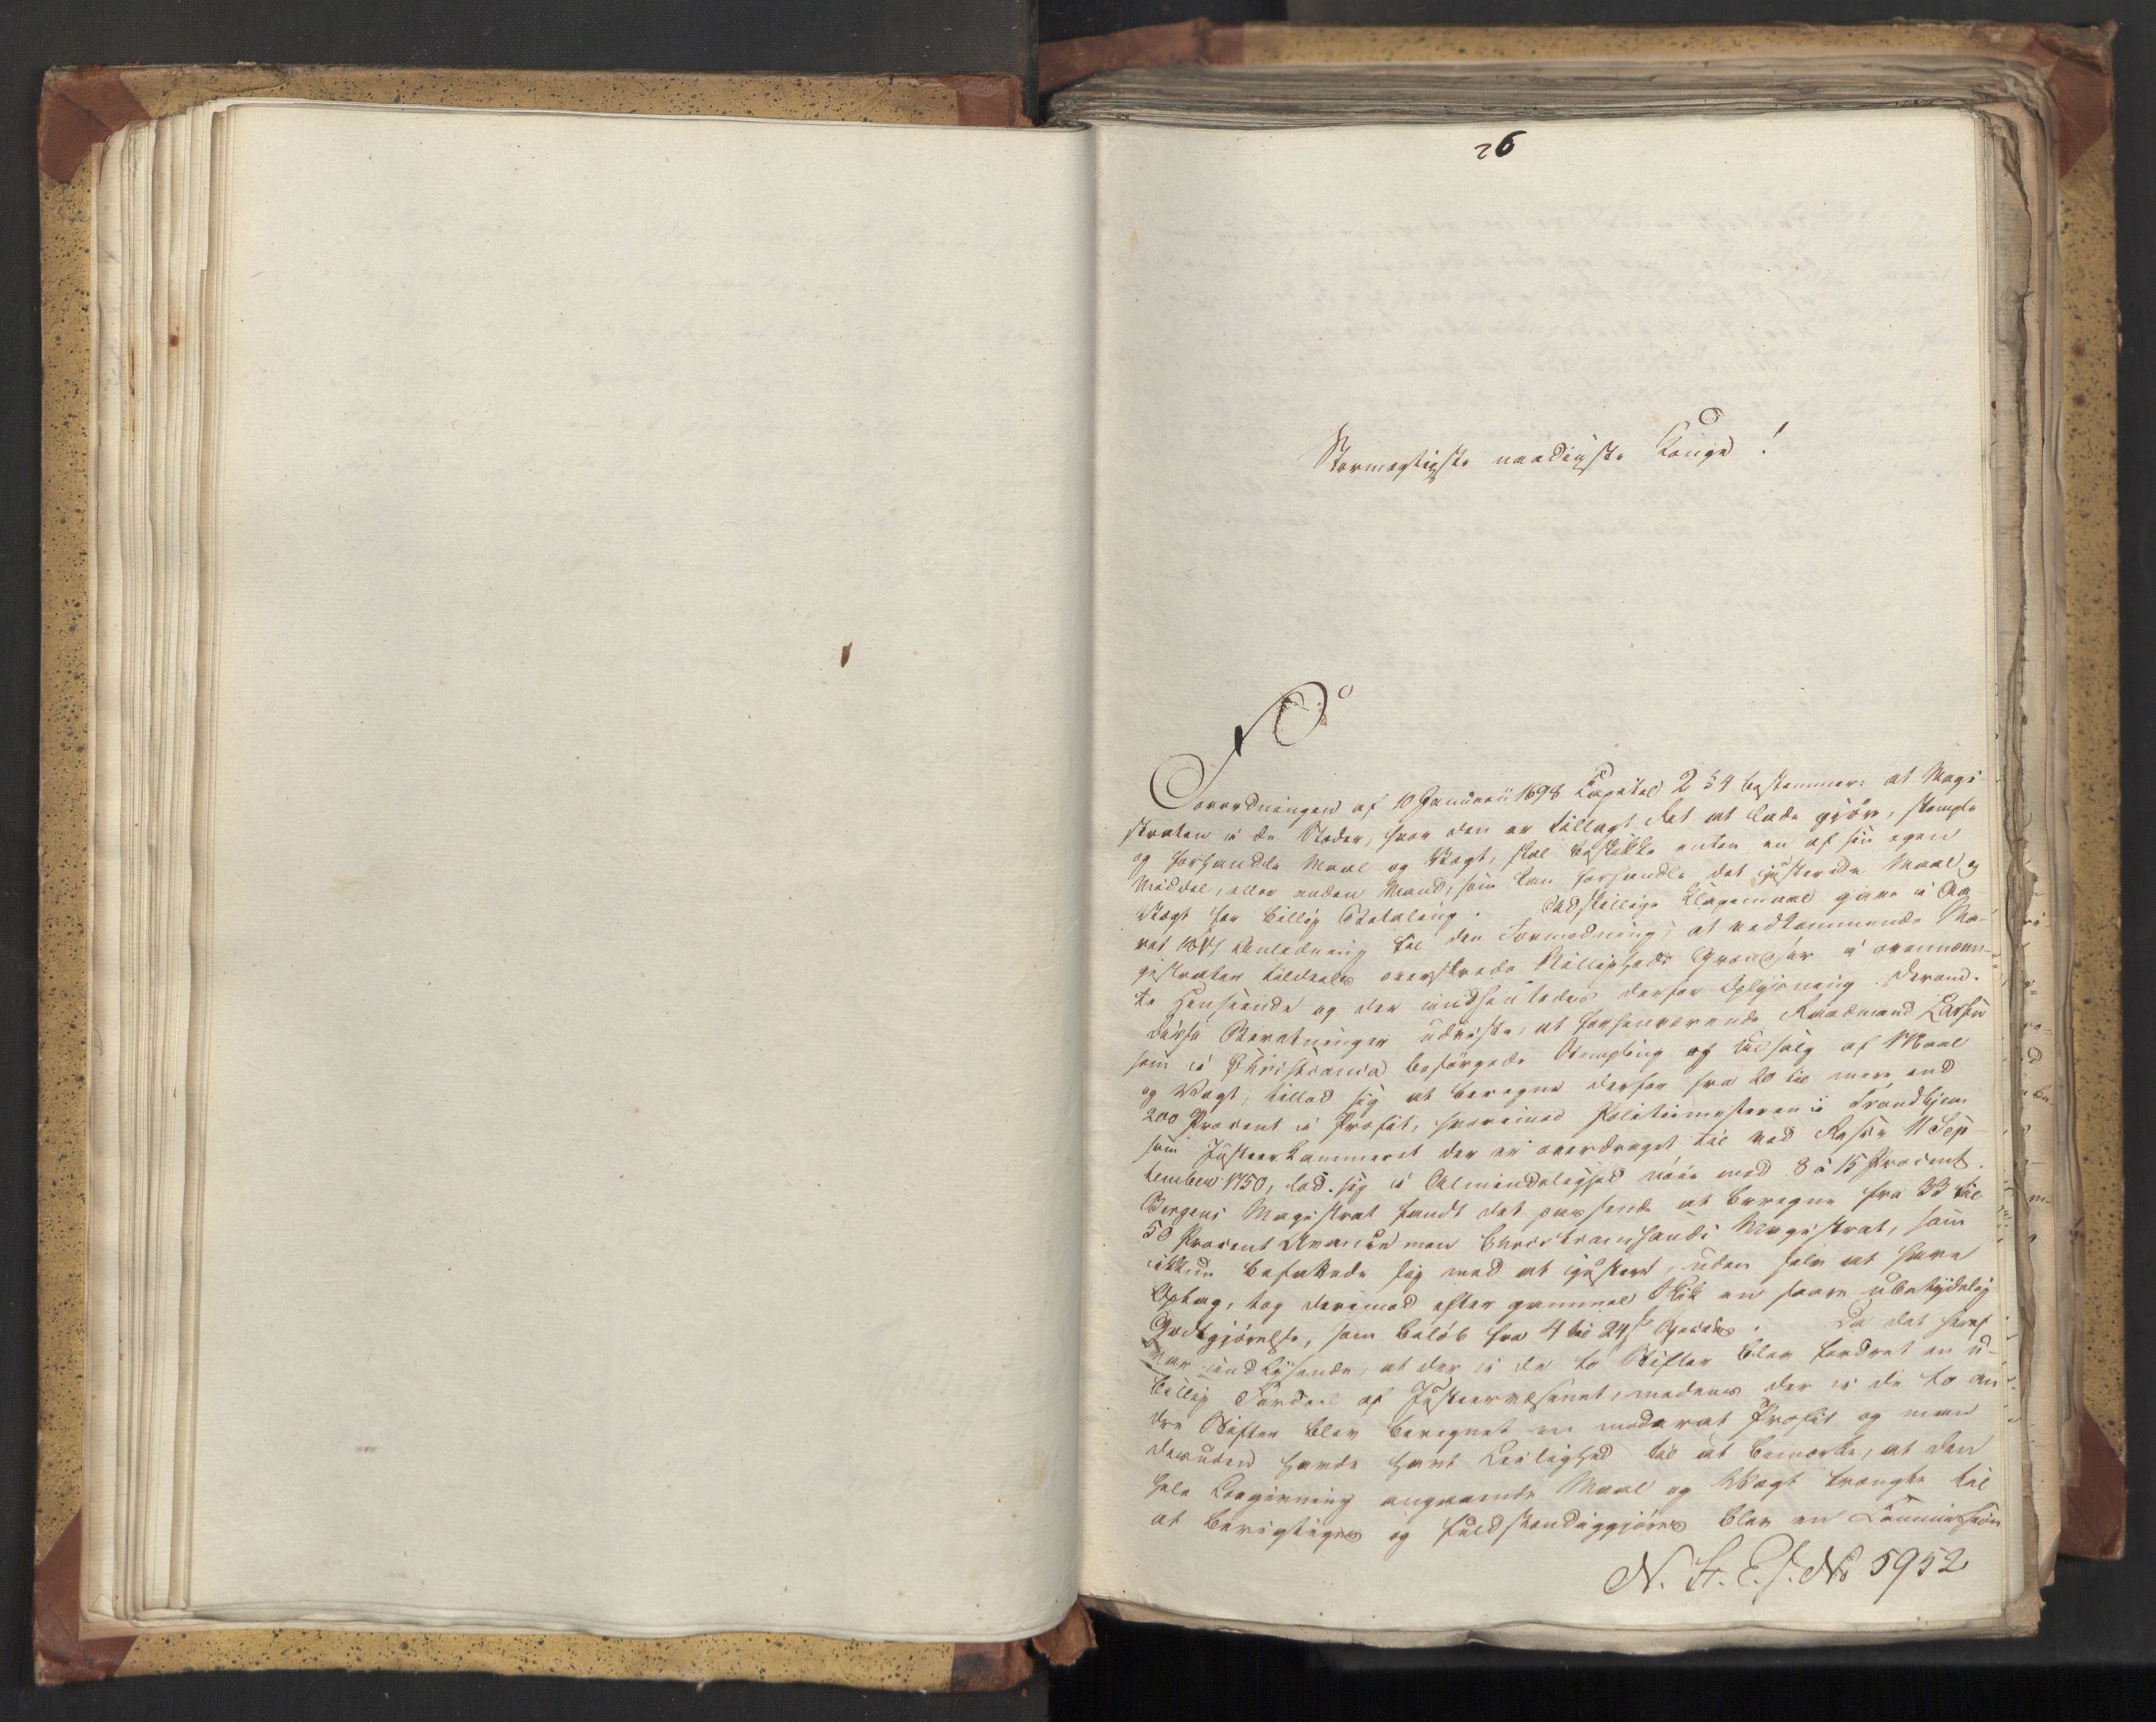 26
Stormægtigste naadigste Konge!
Forordningen af 10 Januarii 1698 Capitel 2 § 4 bestemmer: at Magi-
straten i de Stæder, hvor den er tillagt Ret at lade gjöre, stemple
og forhandle Maal og Vægt, skal beskikke enten en af sin egen
Middel, eller anden Mand, som kan forhandle det justerede Maal og
Vægt for billig Betaling. Adskillige Klagemaal gave i Aa-
ret Anledning til den Formodning, at vedkommende Ma-
gistrater tildeels overskrede Billigheds Grændser i ovennævn-
te Henseende og der indhentedes derfor Oplysning. Derom
Beretninger udviste, at forhenværende Raadmand Larsen
som i Christiania besörgede Stempling og Udsalg af Maal
og Vægt, tillod sig at beregne derfor fra 20 til mere end
200 Procent i Profit, hvorimod Politiemesteren i Trondhjem
som Justeerkammeret der er overdraget til ved Rescr: 11 Sep-
tember 1750, lod sig i Almindelighed nöie med 8 à 15 Procent.
Bergens Magistrat fandt det passende at beregne fra 33 til
50 Procent Avance men Christiansands Magistrat, som
ikkun befattede sig med at justere, uden selv at have
Oplag, tog derimod efter gammel Skik en saare ubetydelig
Godtgjörelse, som belöb fra 4 til 24 s Species. Da det heraf
var indlysende, at der i de to Stifter blev fordret en u-
billig Fordeel af Justeervæsenet, medens der i de to an-
dre Stifter blev beregnet en moderat Profit og man
desuden havde havt Leilighed til at bemærke, at den
hele Lovgivning angaaende Maal og Vægt trængte til
at berigtiges og fuldstændiggjöres blev en Commission
N. St. E. f. No 5952